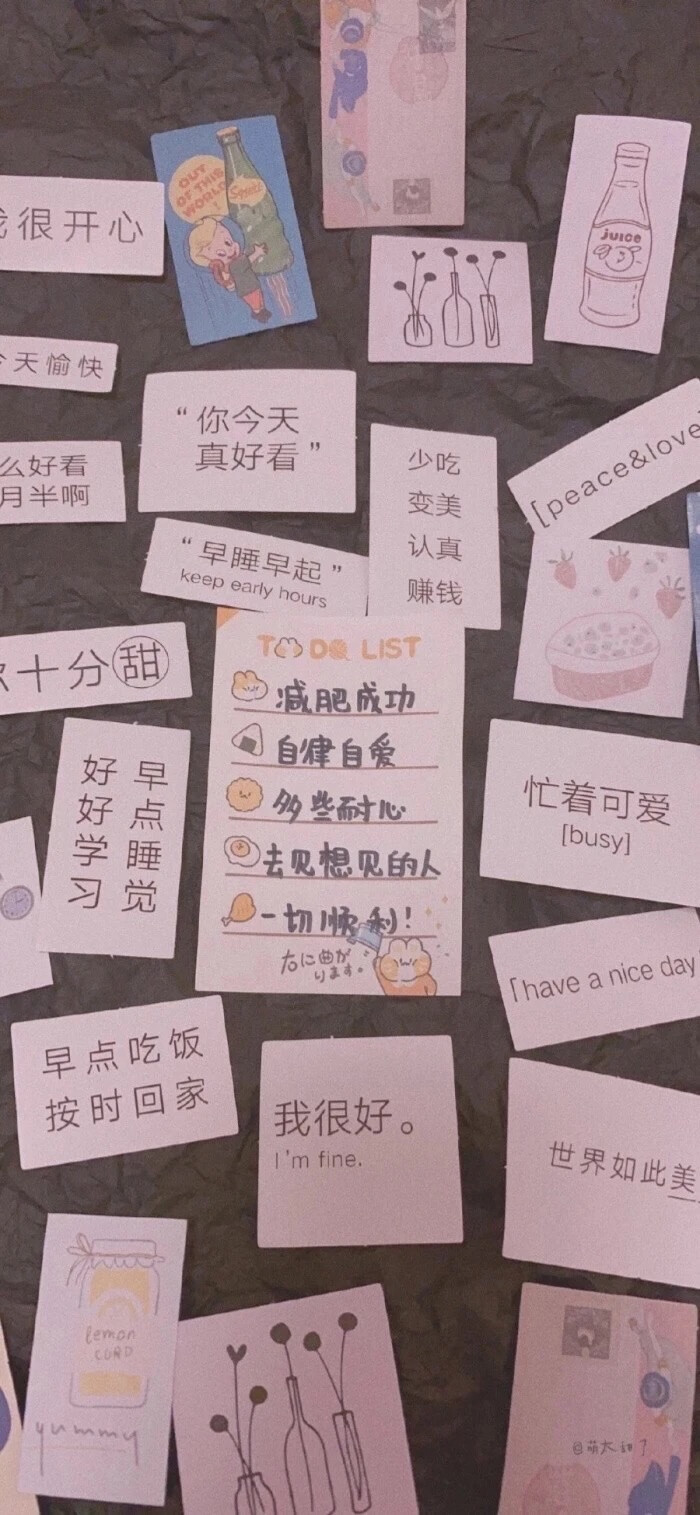 OUT
OF THIS
WORLD
!
我很开心
juice
今天愉快
“你今天
真好看”
么好看
月半啊
少吃
变美
认真
赚钱
[peace&love
“早睡早起”
keep early hours
TO DO LIST
减肥成功
自律自爱
多些耐心
去见想见的人
一切顺利!
右に曲が
ります。
你十分甜
早点睡觉
好好学习
忙着可爱
[busy]
「have a nice day
早点吃饭
按时回家
我很好。
I'm fine.
世界如此美
lemon
CURD
yummy
@萌太甜了